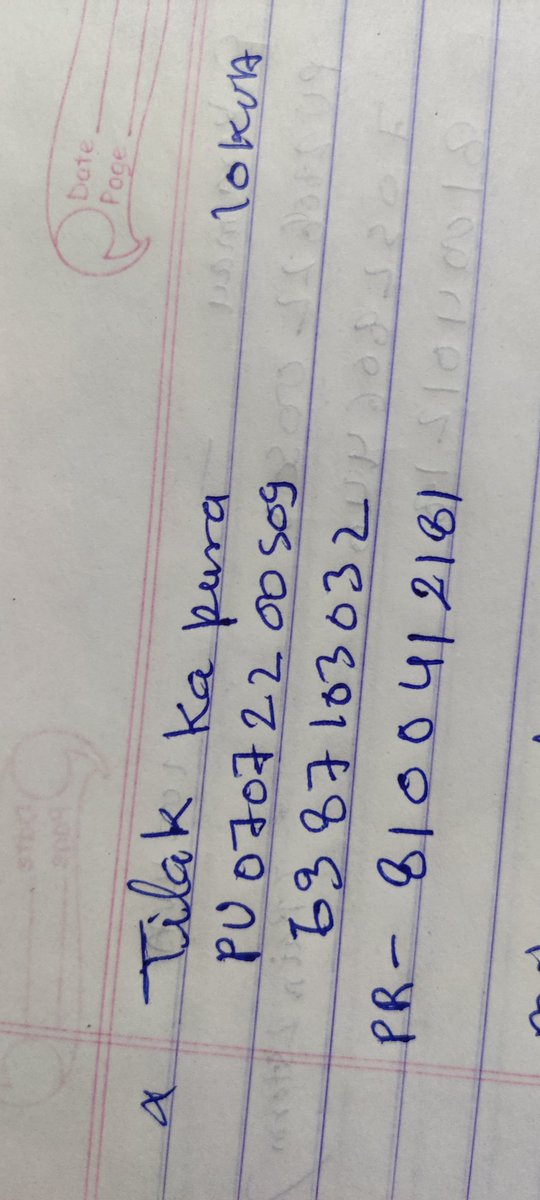 Date
Page
α Tilak ka pura 10KVA
PU 0707 22 00509
6387183032
PR- 8100412181